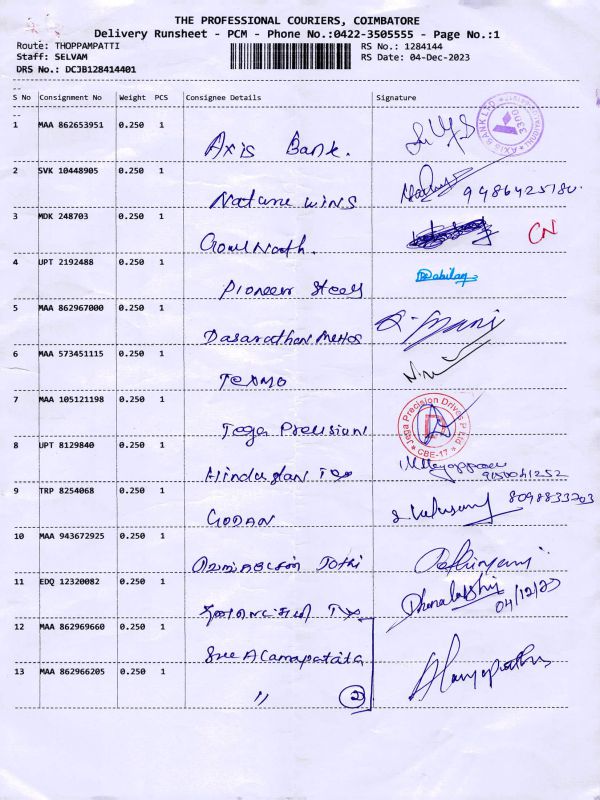 THE PROFESSIONAL COURIERS, COIMBATORE
Delivery Runsheet - PCM - Phone No.:0422-3505555 - Page No.:1
Route: THOPPAMPATTI RS No.: 1284144
Staff: SELVAM RS Date: 04-Dec-2023
DRS No.: DCJB128414401
S No Consignment No Weight PCS Consignee Details Signature
1 MAA 862653951 0.250 1 Axis Bank. AXIS BANK LTD 3300
2 SVK 10448905 0.250 1 Nature wins
3 MDK 248703 0.250 1 CN
4 UPT 2192488 0.250 1 Pioneer Steel
5 MAA 862967000 0.250 1 Dasarathan Mani
6 MAA 573451115 0.250 1 TEXMO
7 MAA 105121198 0.250 1 Jega Precision Jega Precision Drives P Ltd CBE-17
8 UPT 8129840 0.250 1 Hindustan Tex
9 TRP 8254068 0.250 1 GODAN 8098833703
10 MAA 943672925 0.250 1 Jothi
11 EDQ 12320082 0.250 1 Tex Dhanalakshmi 04/12/23
12 MAA 862969660 0.250 1 Sree
13 MAA 862966205 0.250 1 " 2